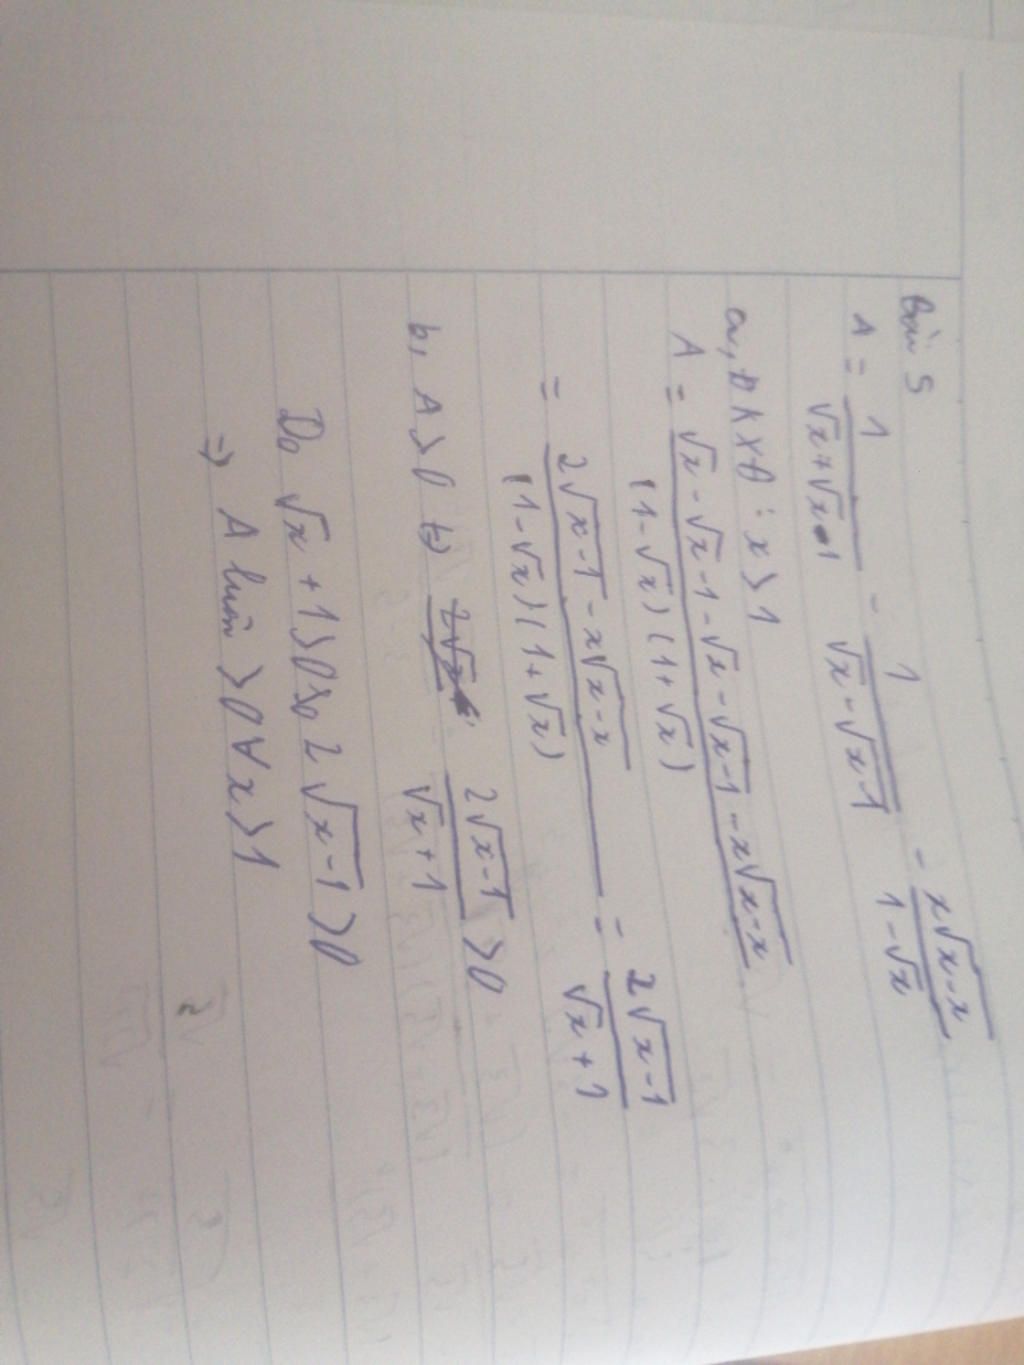 Bài 5
A = 1/(√x+√x-1) - 1/(√x-√(x-1)) - x√(x-x)/(1-√x)
a, ĐKXĐ : x > 1
A = (√x-√x-1-√x-√(x-1)-x√(x-x))/((1-√x)(1+√x))
= (2√(x-1)-x√(x-x))/((1-√x)(1+√x)) = 2√(x-1)/(√x+1)
b, A > 0 2√(x-1)/(√x+1) > 0
Do √x + 1 > 0 2√(x-1) > 0
⇒ A luôn > 0 ∀ x > 1